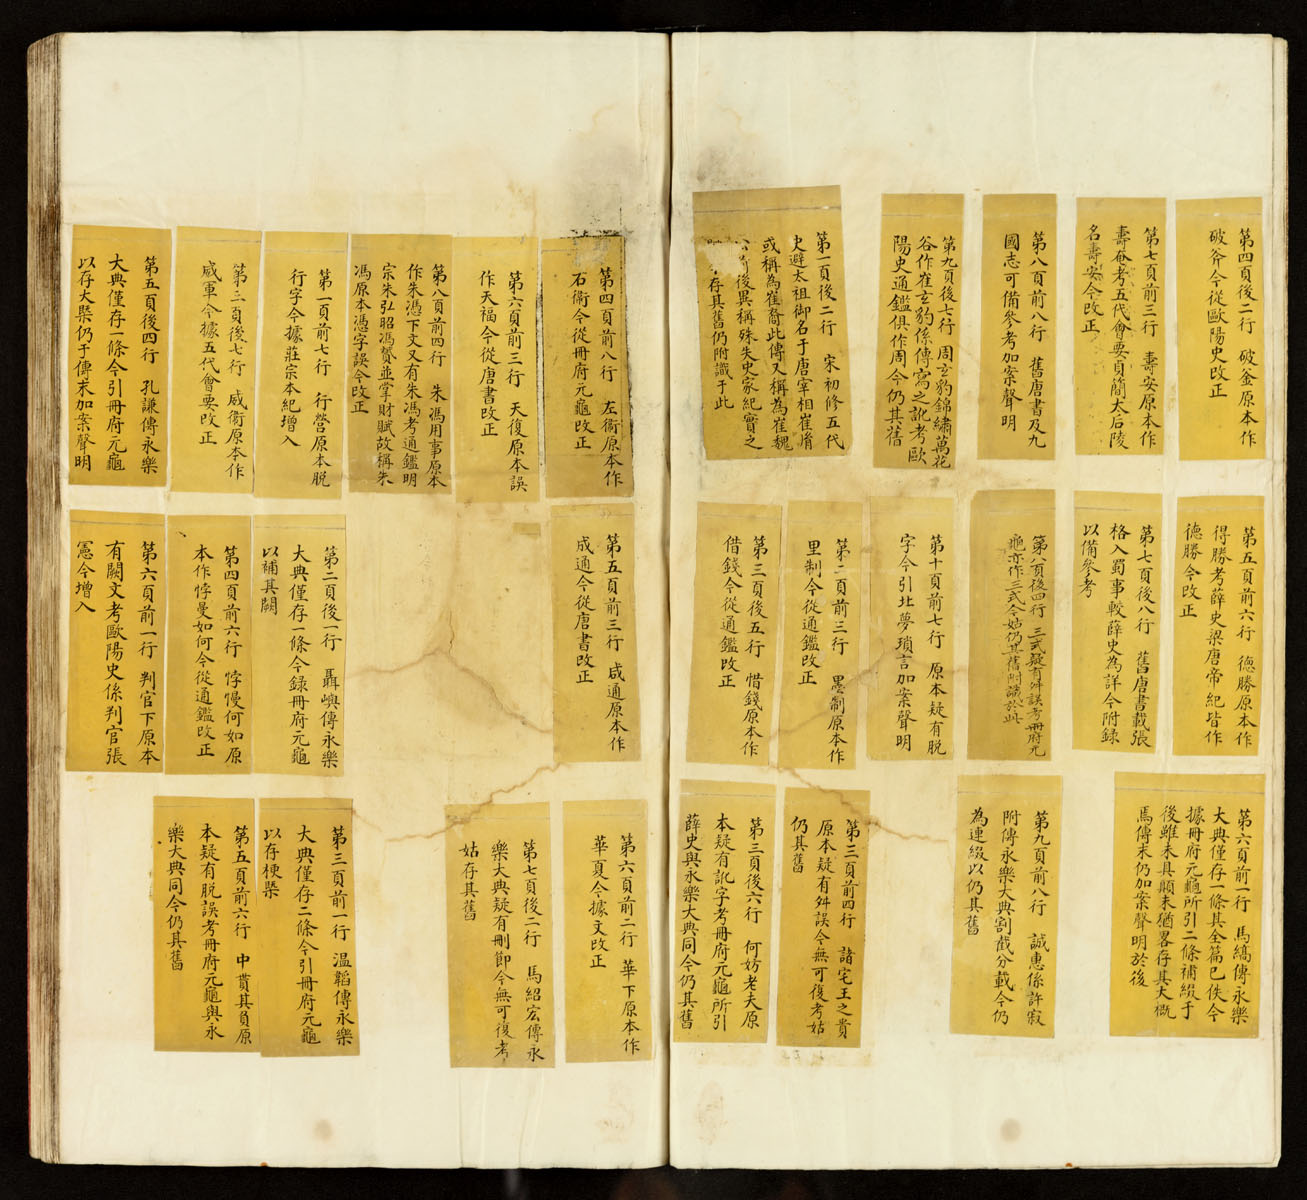 第四頁後二行　破釜原本作
破斧今從歐陽史改正
第七頁前三行　壽安原本作
壽奄考五代會要貞簡太后陵
名壽安今改正
第八頁前八行　舊唐書及九
國志可備參考加案聲明
第九頁後七行　周玄豹錦繡萬花
谷作崔玄豹係傳寫之訛考歐
陽史通鑑俱作周今仍其舊
第一頁後二行　宋初修五代
史避太祖御名于唐宰相崔
或稱為崔裔此傳又稱為崔魏
前後異稱殊失史家紀實之
存其舊仍附識于此
第五頁前六行　德勝原本作
得勝考薛史梁唐帝紀皆作
德勝今改正
第七頁後八行　舊唐書載張
格入蜀事較薛史為詳今附錄
以備參考
第八頁後四行　三式疑有舛誤考冊府元
龜亦作三式今姑仍其舊附識於此
第十頁前七行　原本疑有脫
字今引北夢瑣言加案聲明
第二頁前三行　墨制原本作
里制今從通鑑改正
第三頁後五行　惜錢原本作
借錢今從通鑑改正
第六頁前一行　馬縞傳永樂
大典僅存一條其全篇已佚今
據冊府元龜所引二條補綴于
後雖未具顛末猶畧存其大概
馬傳末仍加案聲明於後
第九頁前八行　誠惠係許寂
附傳永樂大典割截分載今仍
為連綴以仍其舊
第二頁前四行　諸宅王之貴
原本疑有舛誤今無可復考姑
仍其舊
第三頁後六行　何妨老夫原
本疑有訛字考冊府元龜所引
薛史與永樂大典同今仍其舊
第四頁前八行　左衛原本作
石衛今從冊府元龜改正
第六頁前三行　天復原本誤
作天福今從唐書改正
第八頁前四行　朱馮用事原本
作朱憑下文又有朱馮考通鑑明
宗朱弘昭馮贇並掌財賦故稱朱
馮原本憑字誤今改正
第一頁前七行　行營原本脫
行字今據莊宗本紀增入
第三頁後七行　威衛原本作
威軍今據五代會要改正
第五頁後四行　孔謙傳永樂
大典僅存一條今引冊府元龜
以存大槩仍于傳末加案聲明
第五頁前三行　咸通原本作
成通今從唐書改正
第二頁後一行　聶嶼傳永樂
大典僅存一條今錄冊府元龜
以補其闕
第四頁前六行　悖慢何如原
本作悖曼如何今從通鑑改正
第六頁前一行　判官下原本
有闕文考歐陽史係判官張
憲今增入
第六頁前二行　華下原本作
華夏今據文改正
第七頁後二行　馬紹宏傳永
樂大典疑有刪節今無可復考
姑存其舊
第三頁前一行　溫韜傳永樂
大典僅存二條今引冊府元龜
以存梗槩
第五頁前六行　中貰其負原
本疑有脫誤考冊府元龜與永
樂大典同今仍其舊